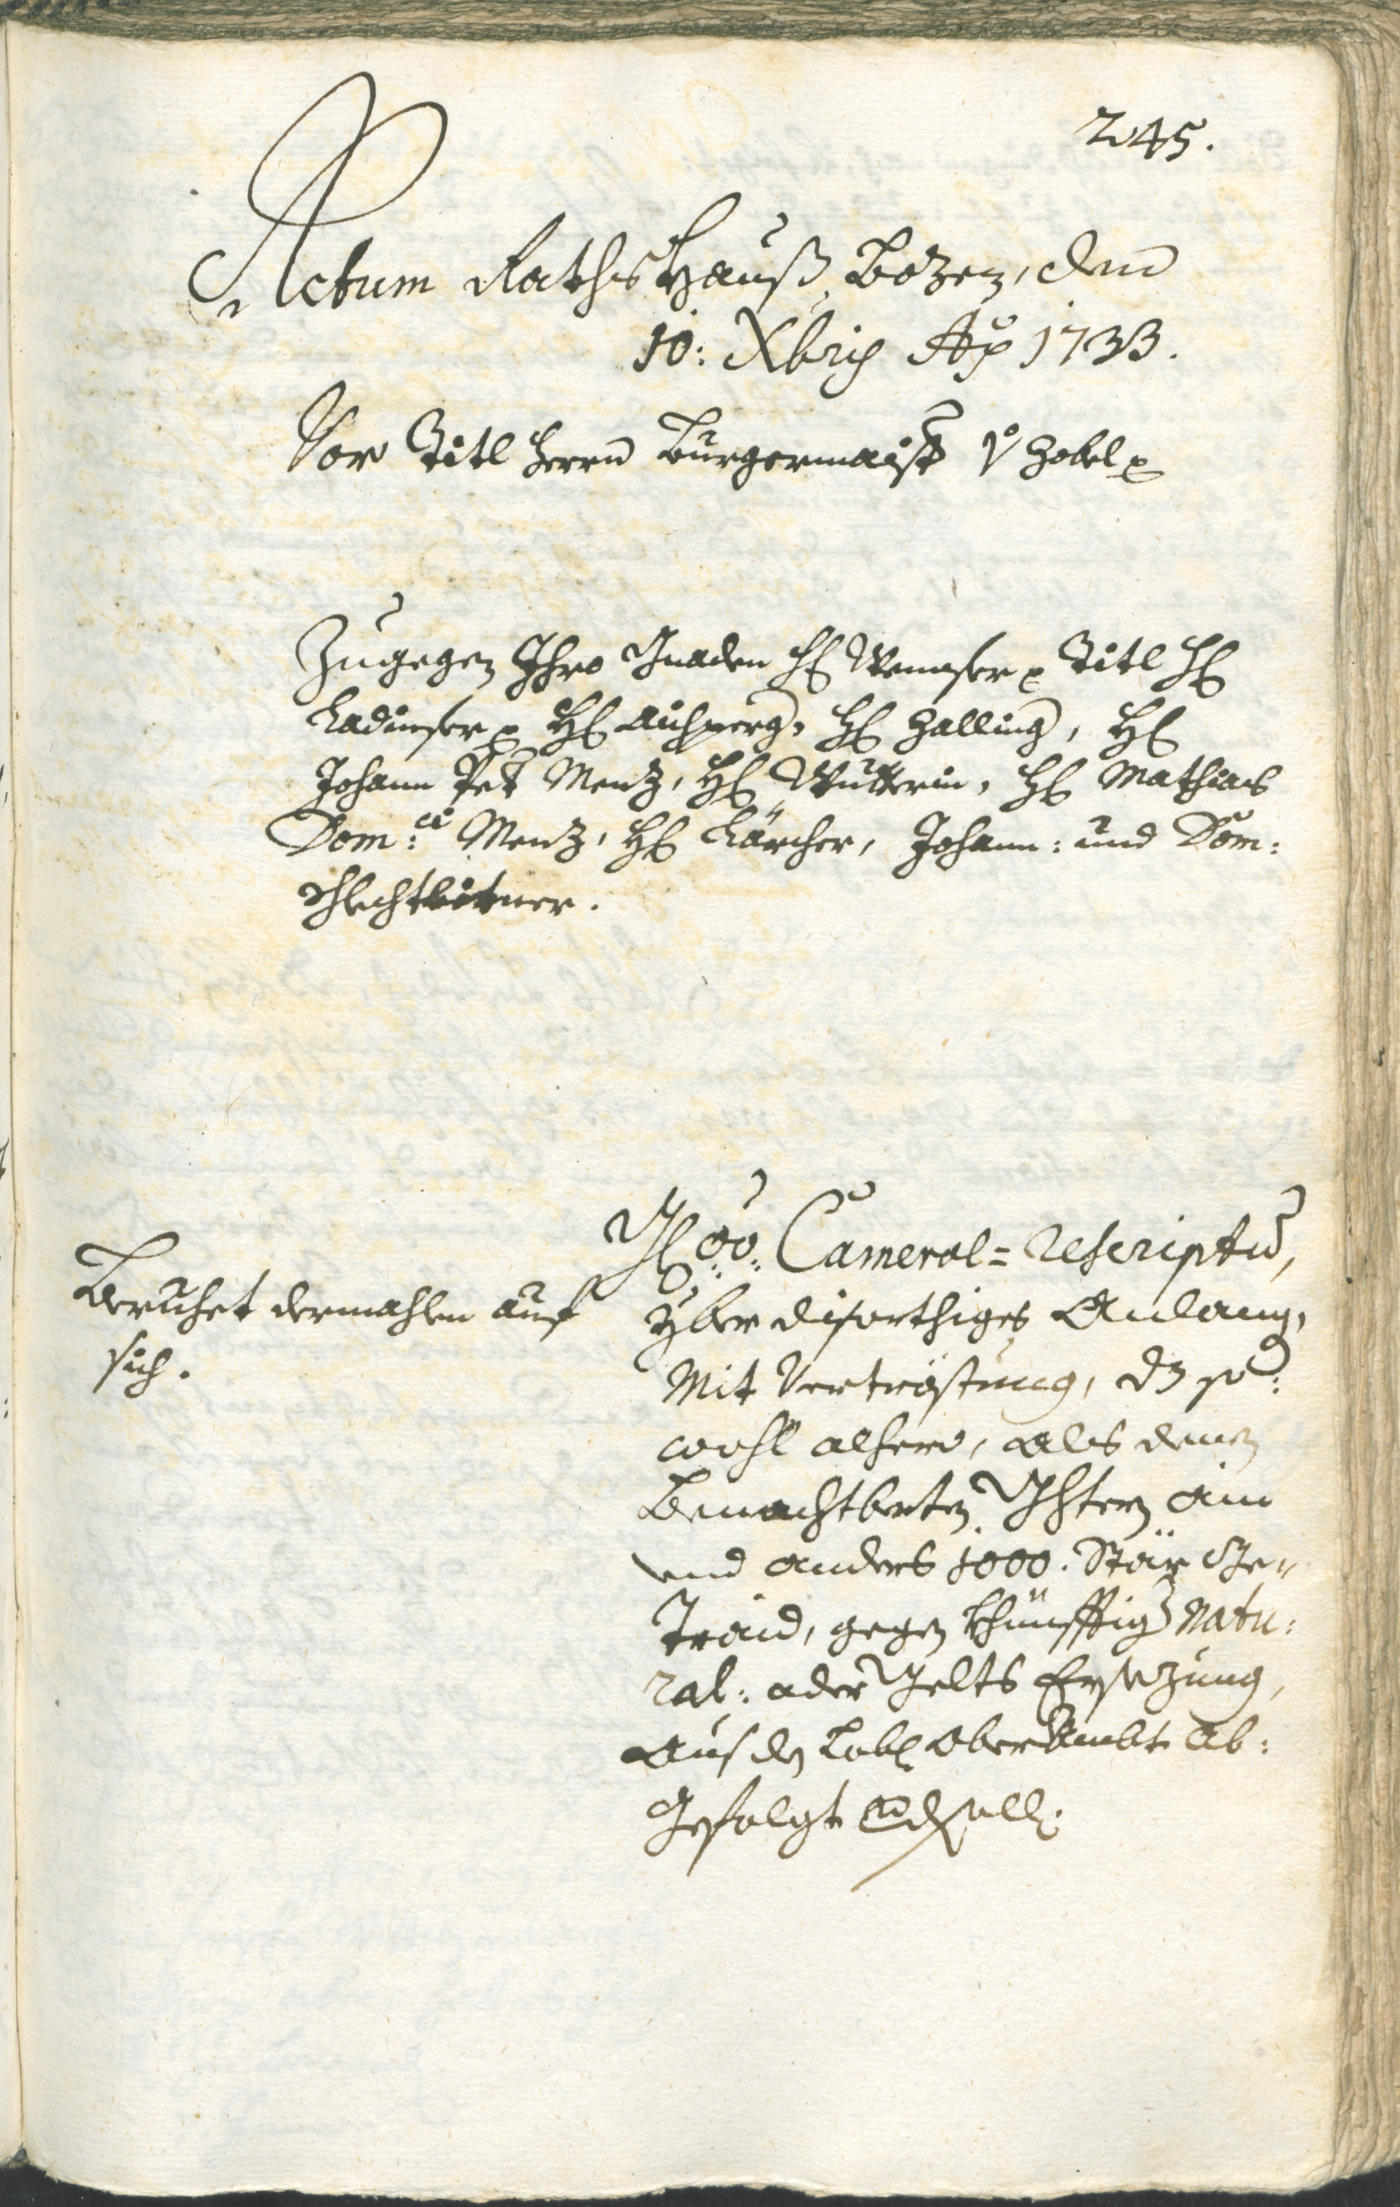 245.
Actum Rathshauß Bozen, den
10: Xbris Ao 1733.
Vor Titl Herrn Burgermaistr v Zobel p
Zugegen Ihro Gnaden H Wenser p Titl H
Ladinser p H Aichperg, H Halling, H
Johann Pet Menz, H Wutterin, H Mathias
Dom:ci Menz, H Kärcher, Johann: und Dom:
Schlechtleitner.
Beruhet dermahlen auf
sich.
Cameral=Rescriptu,
yber disorthiges Anlang,
Mit Vertröstung, dz so:
wohl alhero, als denen
Benachtberten Ghtern ain
und anders 1000. Stär Ge„
Traid, gegen khünfftig Natu:
ral: oder Gelts Ersezung,
aus dem Lobl Oberambt ab:
Gefolgt soll.